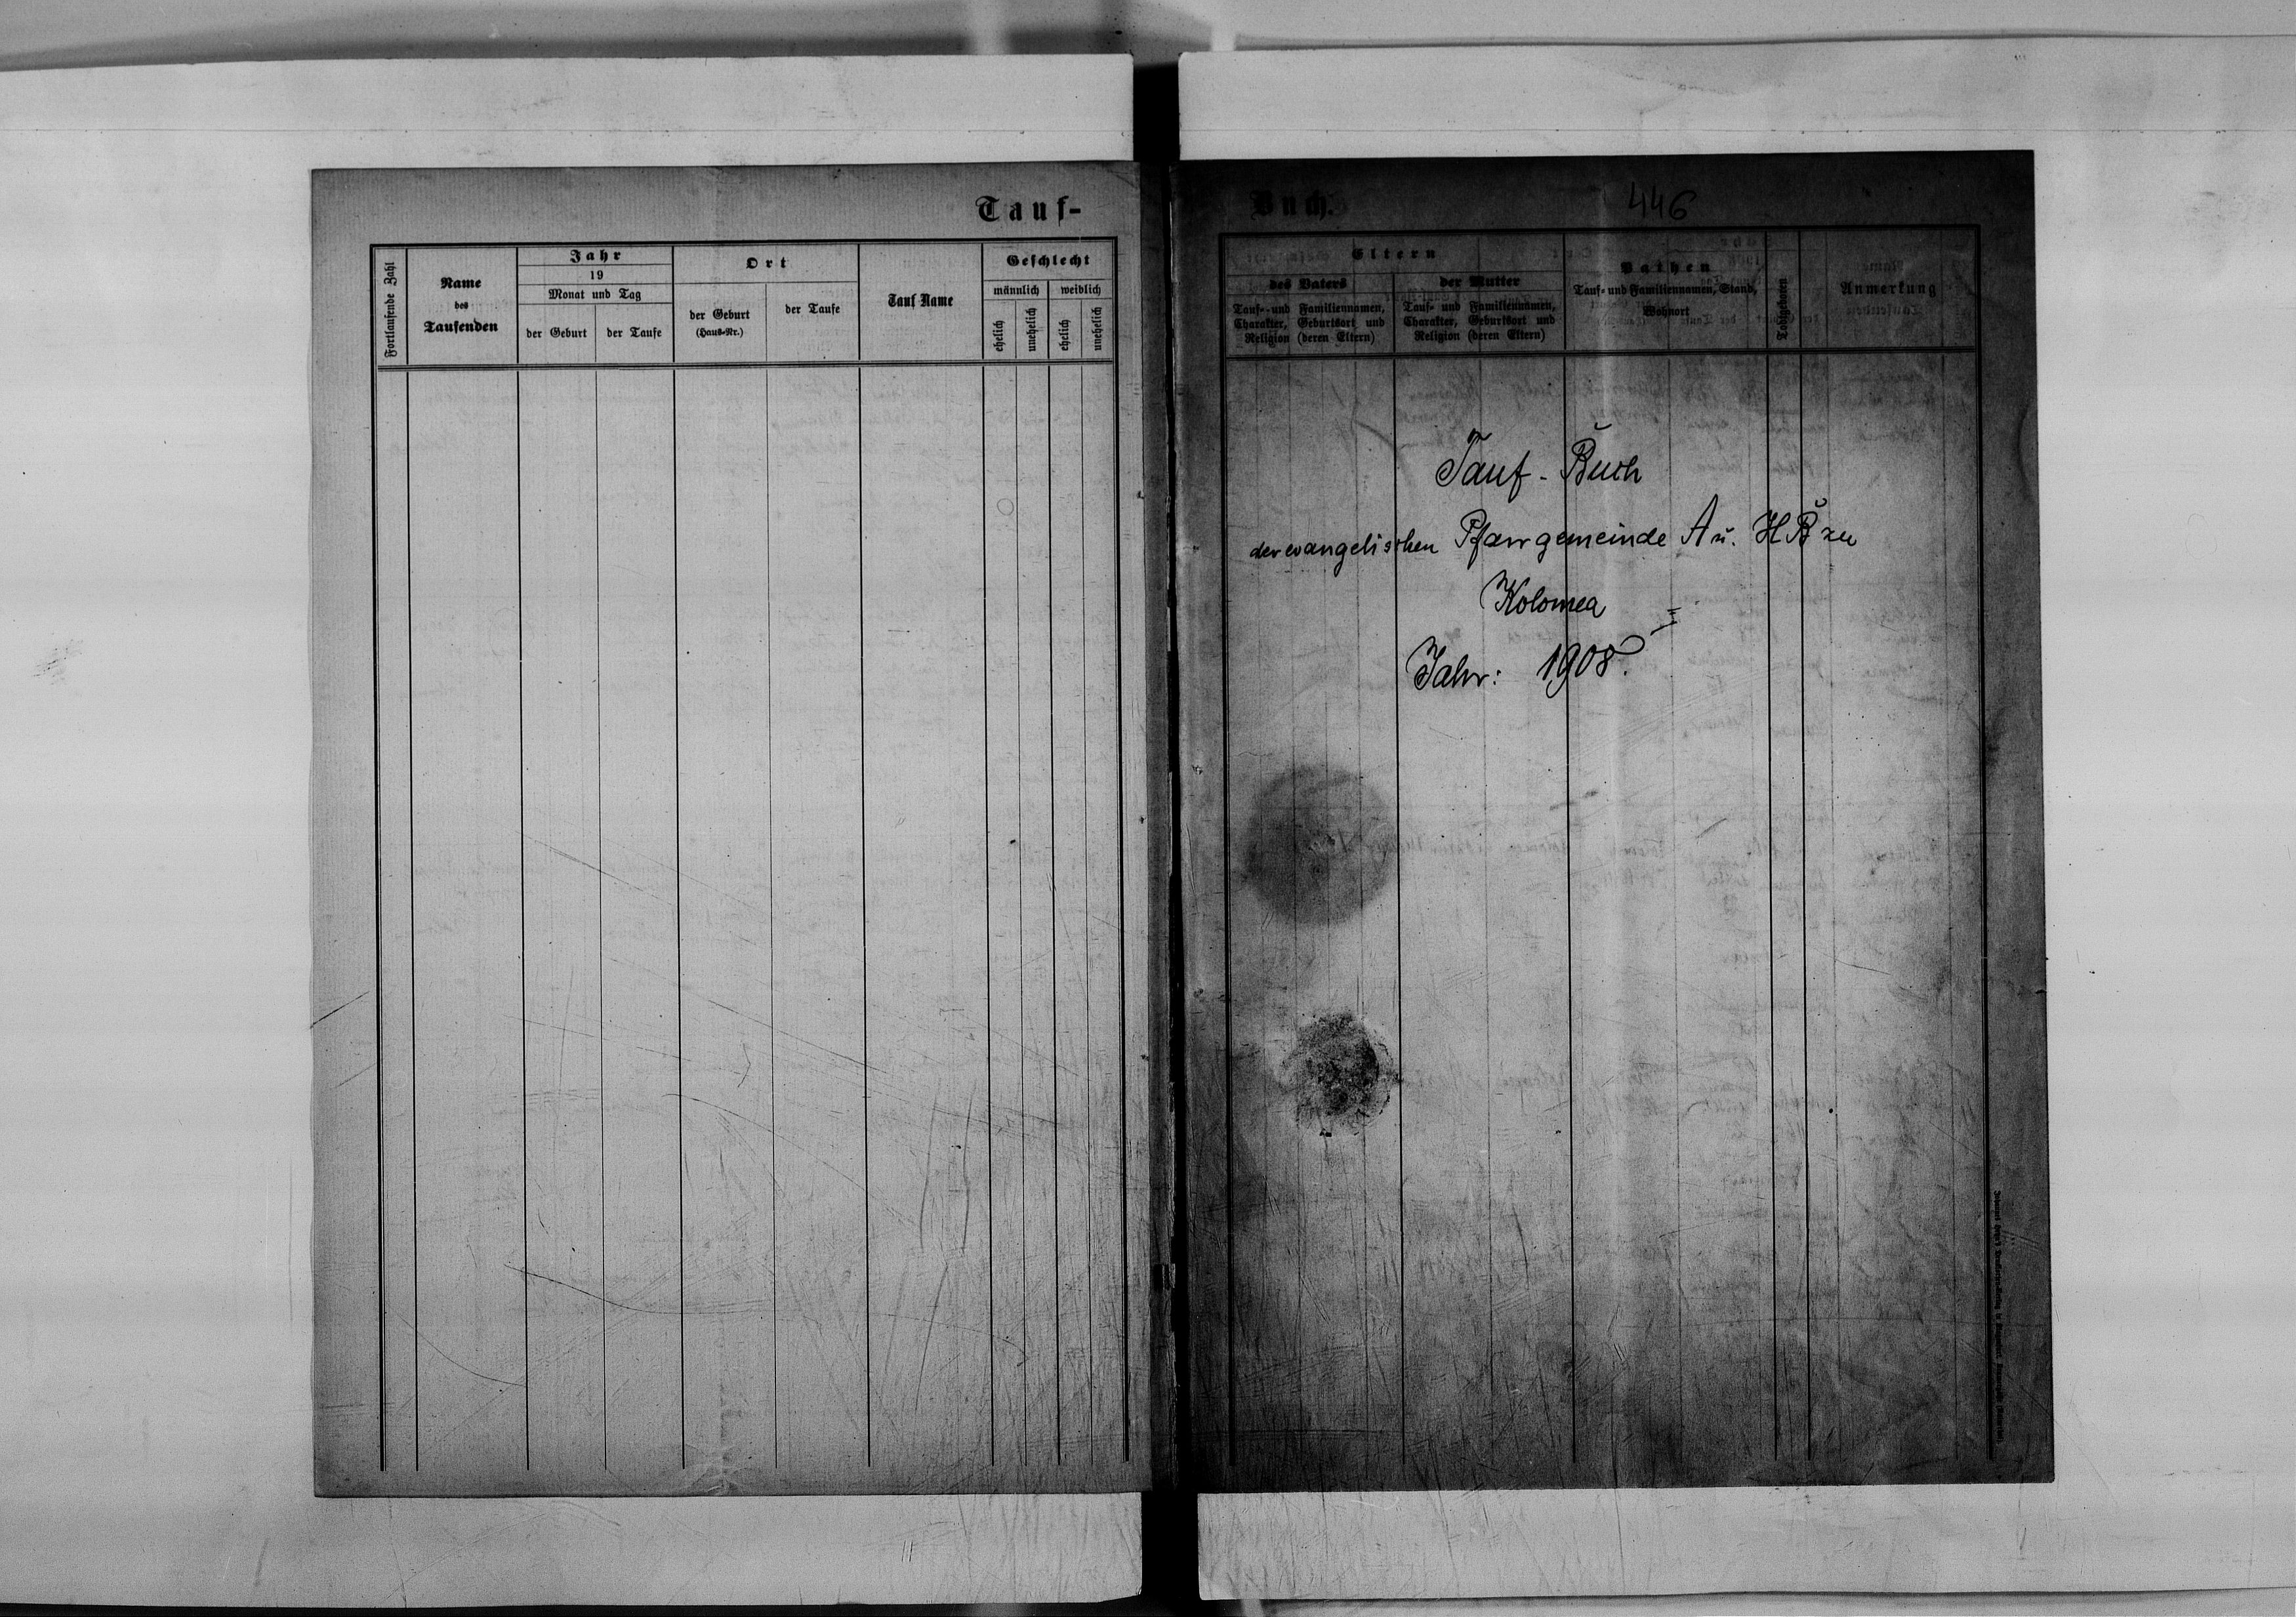 Tauf-
Fortlaufende Zahl
Name
des
Taufenden
Jahr
19
Monat und Tag
der Geburt
der Taufe
Ort
der Geburt
(Haus-Nr.)
der Taufe
Tauf Name
Geschlecht
männlich
weiblich
ehelich
unehelich
ehelich
unehelich
Buch.
446
Eltern
des Vaters
Tauf- und Familiennamen,
Charakter, Geburtsort und
Religion (deren Eltern)
der Mutter
Tauf- und Familiennamen,
Charakter, Geburtsort und
Religion (deren Eltern)
Pathen
Tauf- und Familiennamen, Stand,
Wohnort
Todtgeboren
Anmerkung
Tauf-Buch
der evangelischen Pfarrgemeinde A u. H B zu
Kolomea
Jahr: 1908.